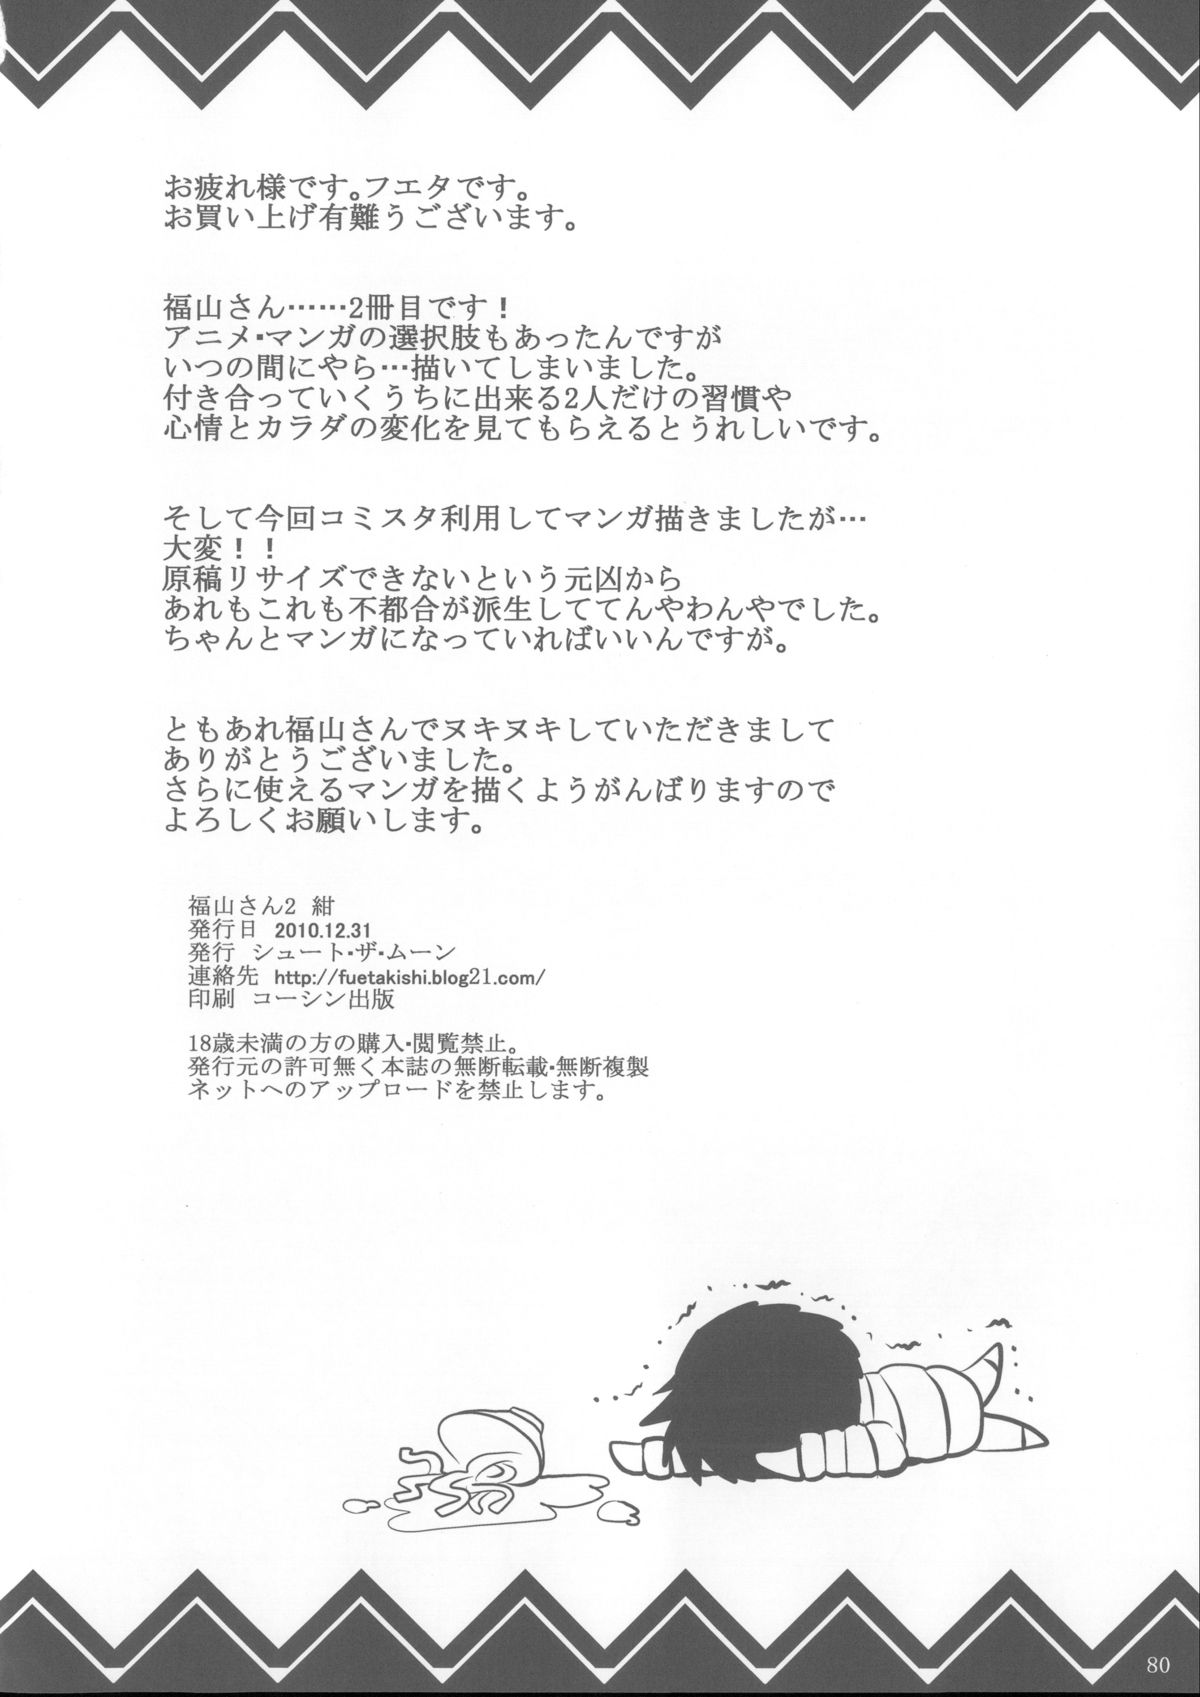 お疲れ様です。フエタです。
お買い上げ有難うございます。
福山さん……2冊目です！
アニメ・マンガの選択肢もあったんですが
いつの間にやら…描いてしまいました。
付き合っていくうちに出来る2人だけの習慣や
心情とカラダの変化を見てもらえるとうれしいです。
そして今回コミスタ利用してマンガ描きましたが…
大変！！
原稿リサイズできないという元凶から
あれもこれも不都合が派生しててんやわんやでした。
ちゃんとマンガになっていればいいんですが。
ともあれ福山さんでヌキヌキしていただきまして
ありがとうございました。
さらに使えるマンガを描くようがんばりますので
よろしくお願いします。
福山さん2 紺
発行日 2010.12.31
発行 シュート・ザ・ムーン
連絡先 http://fuetakishi.blog21.com/
印刷 コーシン出版
18歳未満の方の購入・閲覧禁止。
発行元の許可無く本誌の無断転載・無断複製
ネットへのアップロードを禁止します。
80